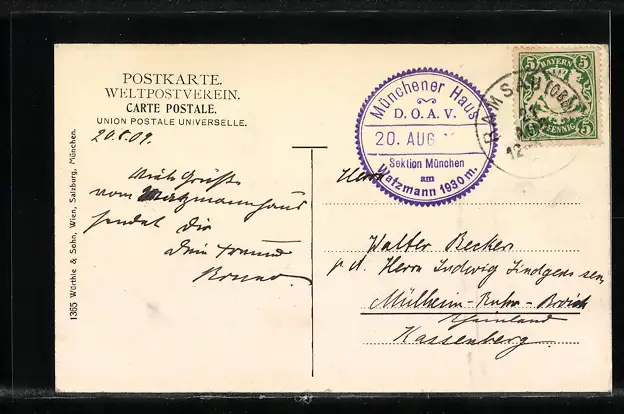 POSTKARTE.
WELTPOSTVEREIN.
CARTE POSTALE.
UNION POSTALE UNIVERSELLE.
20.8.09.
Viele Grüße
vom Watzmannhaus
sendet Dir
Dein Freund
Bruno.
1365 Würthle & Sohn, Wien, Salzburg, München.
Münchener Haus
D. O. A. V.
20. AUG
Sektion München
am
Watzmann 1930 m.
BAYERN
5 5
5 5
PFENNIG
RAMSAU
Herrn
Walter Becker
Herrn Ludwig Lindgens sen.
Mülheim-Ruhr-Broich
Rheinland
Kassenberg.